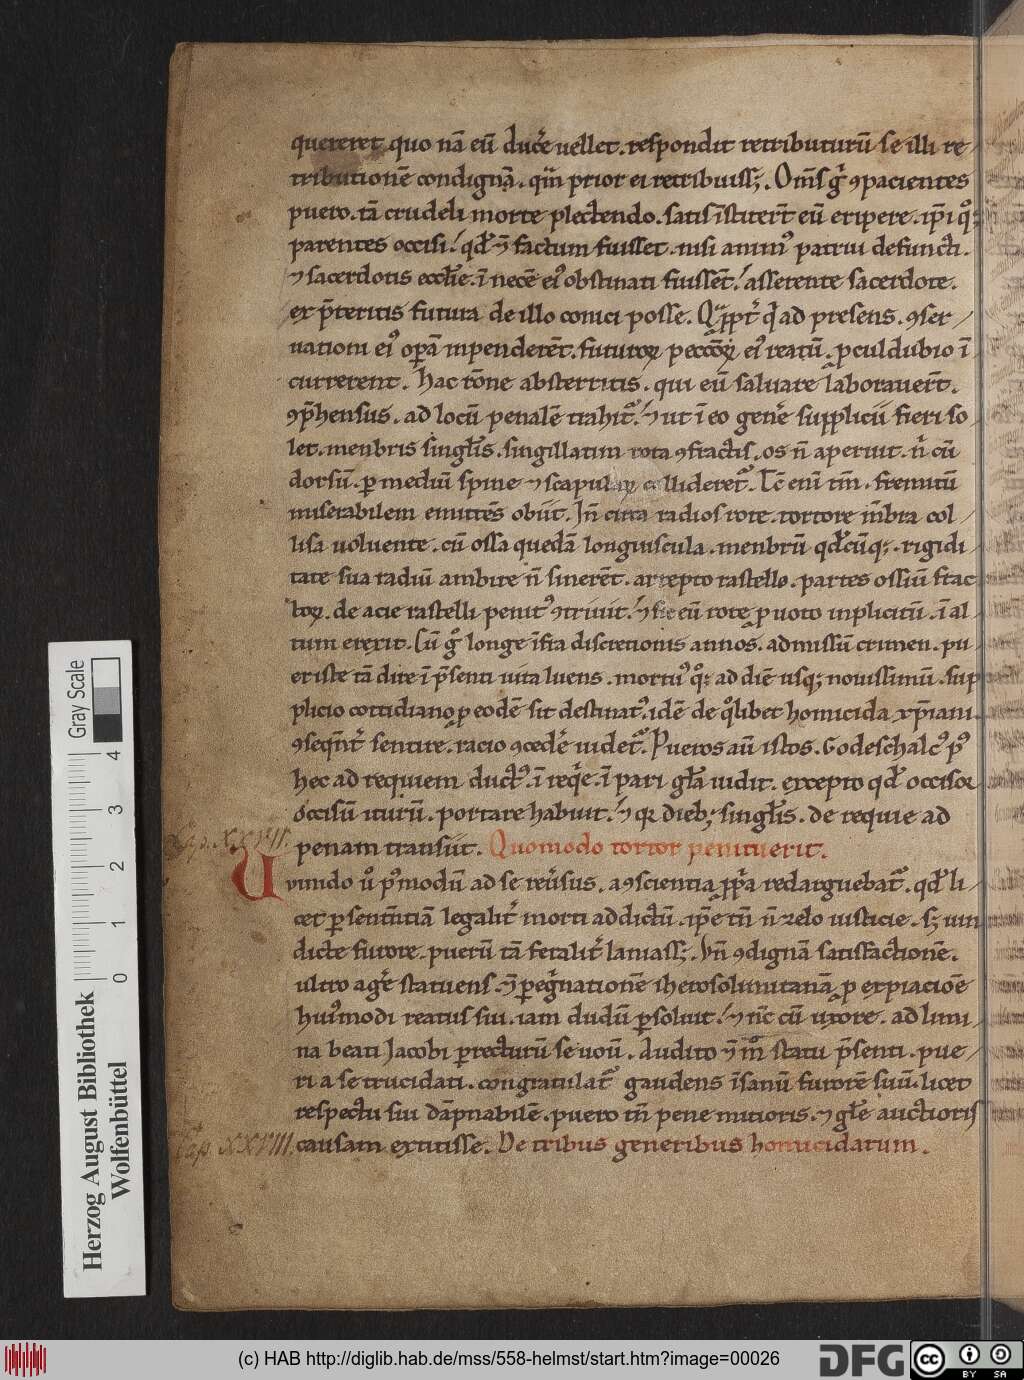 quereret quo nā eū ducͤe uellet. respondit retributurū se illi re
tributionē condignā. qm̄ prior ei retribuiss&; . Om̄s gͥ ꝯpacientes
puero. tā crudeli morte plectendo. satis īstiterꝛ̄t eū eripere. ip̄i qͦꝫ
parentes occisi. qđ ⁊ factum fuisset. nisi animꝰ patrui defuncti.
⁊ sacerdotis eccłie. ī necē eiꝰ obstinati fuissēt. asserente sacerdote.
ex p̄teritis futura de illo conici posse. ad presens. ꝯser
uationi eiꝰ opā inpenderēt. futuroꝝ peccōꝝ eiꝰ reatū. ꝓculdubio ī
currerent. Hac rōne absterritis. qui eū saluare laborauerꝛ̄t.
ꝯp̄hensus. ad locū penalē trahit᷑. ⁊ ut ī eo genͤe supplicii fieri so
let. menbris singłis. singillatim rota ꝯfractis. os n̄ aperuit. nͥ cū
dorsū. ꝑ mediū spine ⁊ scapulaꝝ collideret᷑. Tc̄ eni tm̄. fremitū
miserabilem emittēs obiit. Jn̄ circa radios rote. tortore m̄bra col
lisa uoluente. cū ossa quedā longiuscula. menbrū qđcūqꝫ. rigidi
tate sua radiū ambire n̄ sinerēt. arrepto rastello. partes ossiū frac
toꝝ. de acie rastelli penitꝰ ꝯtriuit. ⁊ sic eū rote ꝓ uoto inplicitū. ī al
tum erexit. Cū gͦ longe īfra discretionis annos. admissū crimen. pu
er iste tā dire ī p̄senti uita luens. mortuꝰ qͦꝫ ad diē usqꝫ nouissimū. sup
plicio cottidiano ꝑ eodē sit destinatꝰ. idē de qͦlibet homicida xp̄iani.
ꝯseqn̄t᷑ sentire. racio ꝯcedͤe uidet᷑. Pueros aū istos. Godeschalcꝰ pꝰ
hec ad requiem ductꝰ. ī reqͥe. ī pari głā uidit. excepto qđ occisor
occisū iturū. portare habuit. ⁊ qͣ dieb; singłis. de requie ad
Cap. XXVII.
penam transiit. Quomodo tortor penituerit.
Uuindo uͦ pꝰmodū ad se reuͥsus. a ꝯscientia ꝓpͥa redarguebat᷑. qđ li
cet ꝑ sententiā legalit᷑ morti addictū. ip̄e tn̄ n̄ zelo iusticie. s; uin
dicte furore. puerū tā fetalit᷑ laniass&;. Vn̄ ꝯdignā satisfactionē.
ultro agͤe statuens. ⁊ ꝑegͥnationē iherosolimitanā ꝓ expiaciōe
huiꝰmodi reatus sui. iam dudū ꝑsoluit. ⁊ nc̄ cū uxore. ad limi
na beati Jacobi ꝑrecturū se uouͥ. Audito ⁊ mͦ statu p̄senti. pue
ri a se trucidati. congratulat᷑ gaudens īsanū furorē suū. licet
respectu sui dāpnabilē. puero tn̄ pene mitioris. ⁊ głe auctioris
Cap XXVIII.
causam extitisse. De tribus generibus homicidarum.
Gray Scale
0 1 2 3 4
Herzog August Bibliothek
Wolfenbüttel
(c) HAB http://diglib.hab.de/mss/558-helmst/start.htm?image=00026
DFG
cc BY SA